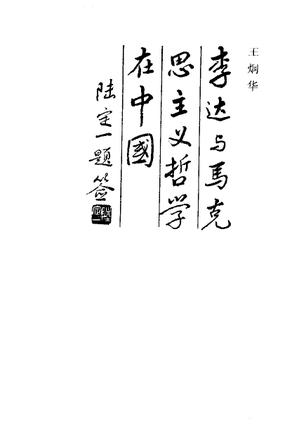 王炯华
李达与馬克
思主义哲学
在中國
陆定一题签